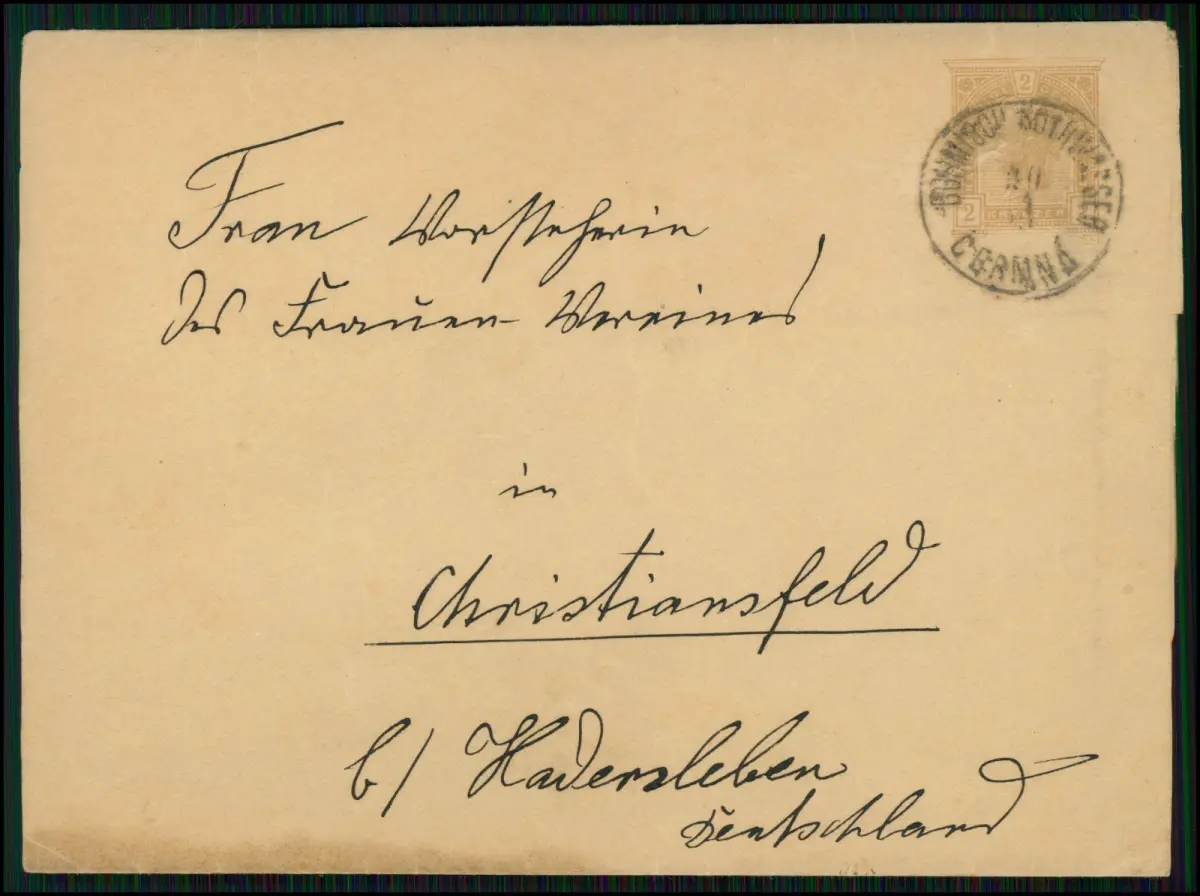 2
2 KREUZER
BÖHMISCH ROTHWASSER
20
1
ČERMNÁ
Frau Vorsteherin
des Frauen-Vereines
in
Christiansfeld
b/ Hadersleben
Deutschland